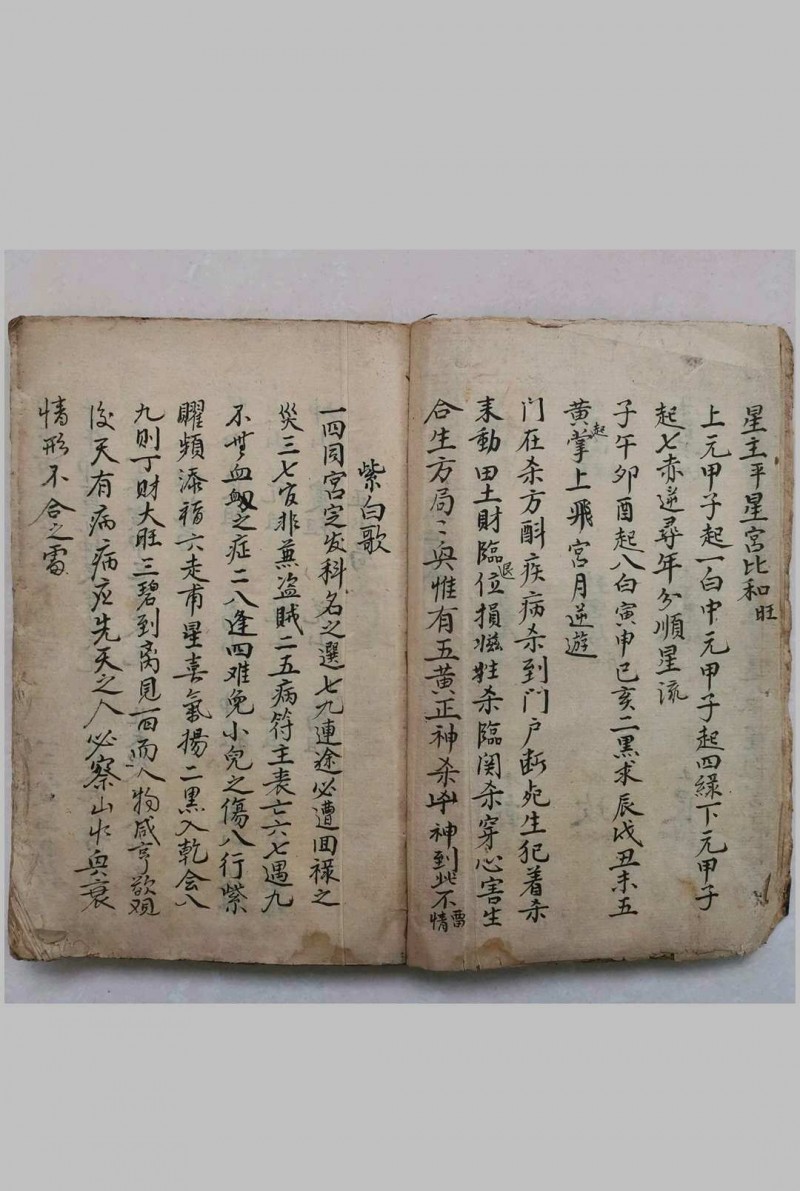 星主平星宮比和旺
上元甲子起一白中元甲子起四緑下元甲子
起七赤逆尋年分順星流
子午卯酉起八白寅申巳亥二黑求辰戌丑未五
黄起掌上飛宮月逆遊
门在杀方斟疾病杀到门户断死生犯着杀
来動田土財臨退位損滋牲杀臨関杀穿心害生
合生方局〻兴惟有五黄正神杀凶神到此不畱情
紫白歌
一四同宮定发科名之選七九連途必遭回禄之
災三七官非兼盗賊二五病符主喪亡六七遇九
不無血衂之症二八逢四难免小兒之傷八行紫
曜頻添福六走甫星喜氣揚二黑入乾会八
九則丁财大旺三碧到离見一而人物咸亨欲观
後天有病病在先天之人必察山水兴衰
情形不合之